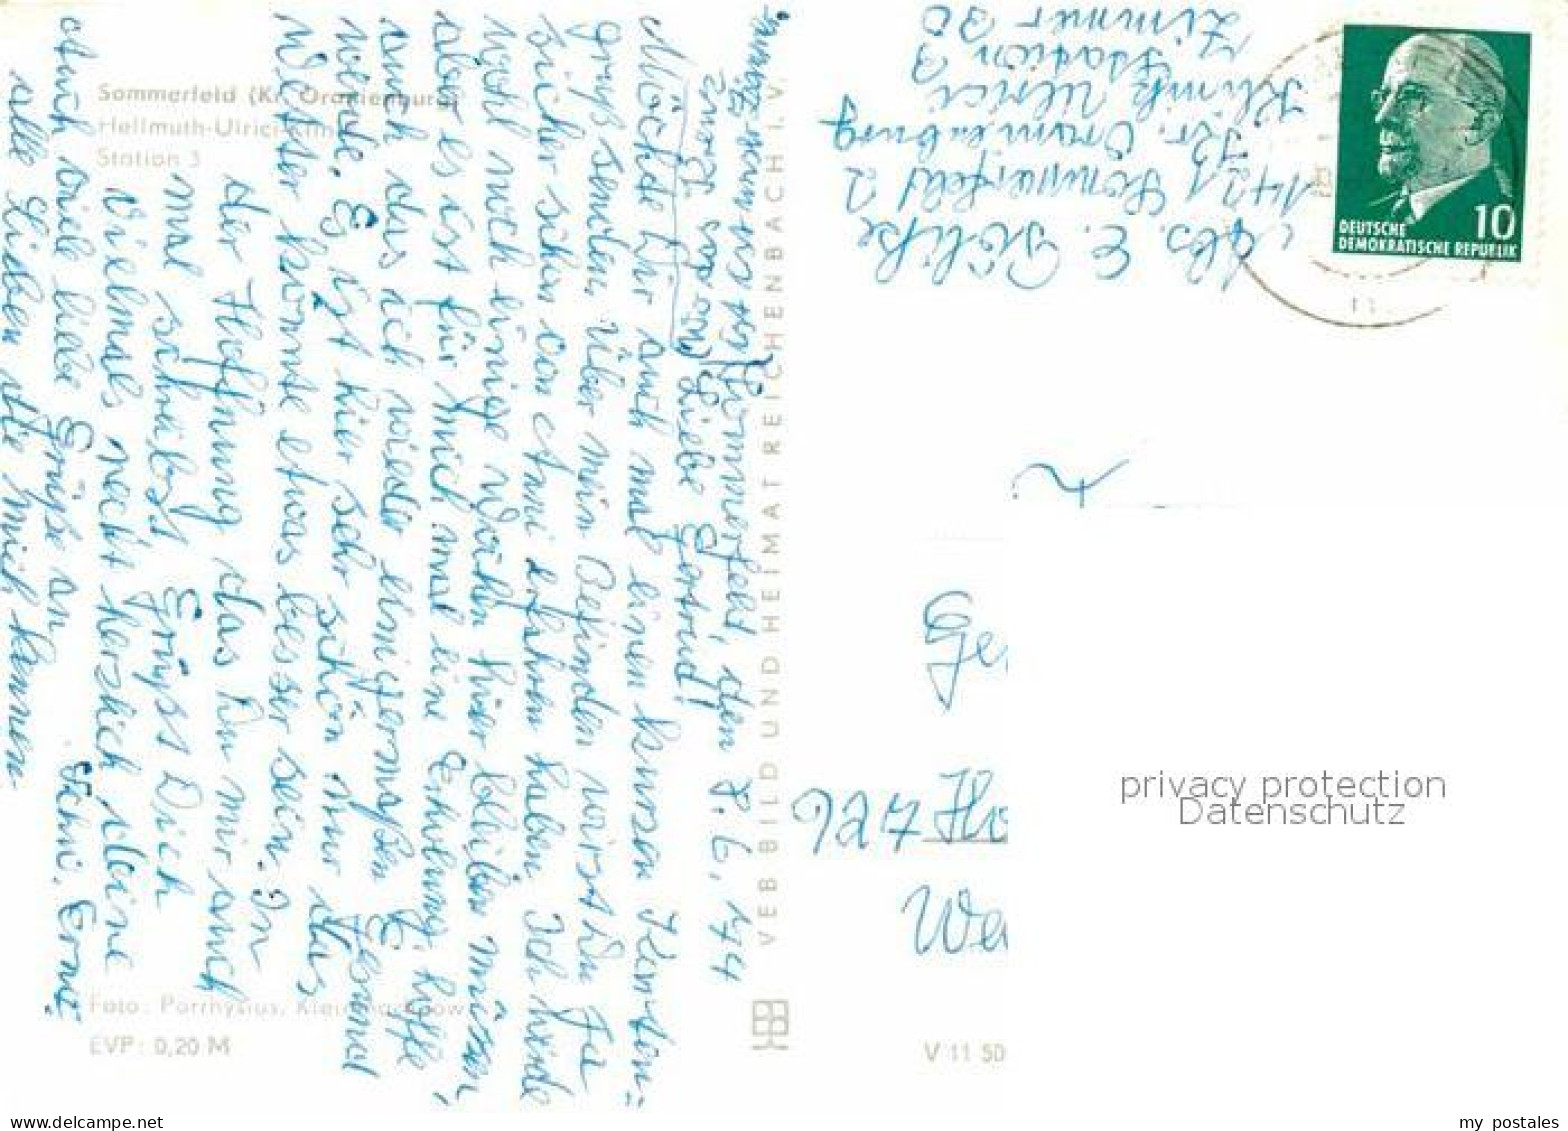 Sommerfeld (Kr. Oranienburg)
Hellmuth-Ulrici-Klinik
Station 3
Sommerfeld, den 8. 6, 74
Liebe Gertrud!
Möchte Dir auch mal einen kurzen Karten=
gruß senden. Über mein Befinden wirst Du ja
sicher schon von Anni erfahren haben. Ich werde
wohl noch einige Wochen hier bleiben müssen,
aber es ist für mich mal eine Erholung, hoffe
auch das ich wieder einigermaßen Gesund
werde. Es ist hier sehr schön nur das
Wetter könnte etwas besser sein. In
der Hoffnung das Du mir auch
mal schreibst Grüßt Dich
Vielmals recht herzlich deine
Schw. Erna
Auch viele liebe Grüße an
alle Lieben die mich kennen
Foto: Parrhysius, Kleinmachnow
EVP: 0,20 M
VEB BILD UND HEIMAT REICHENBACH I. V.
V 11 50
Abs. E.
1421 Sommerfeld 2
Kr. Oranienburg
Klinik Ulrici
Station 3
Zimmer 30
DEUTSCHE
DEMOKRATISCHE REPUBLIK
10
Ge
927 Ho
We
privacy protection
Datenschutz
www.delcampe.net
my_postales